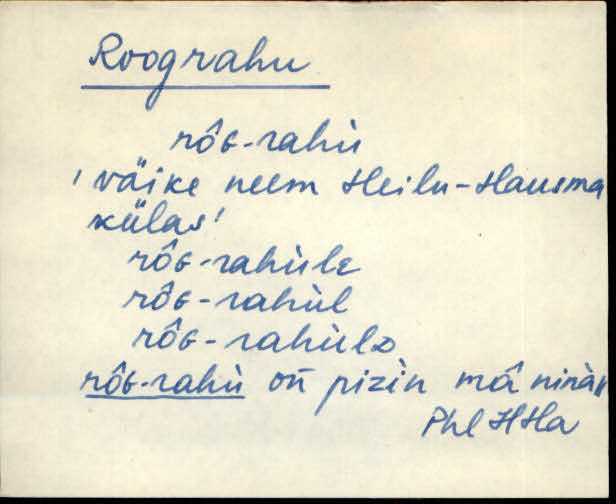 Roograhu
rôɢ-rahù
'väike neem Heilu-Hausma
külas'
rôɢ-rahùle
rôɢ-rahùl
rôɢ-rahùlᴅ
rôɢ-rahù on̄ pizìn mâ ninà
Phl HHa